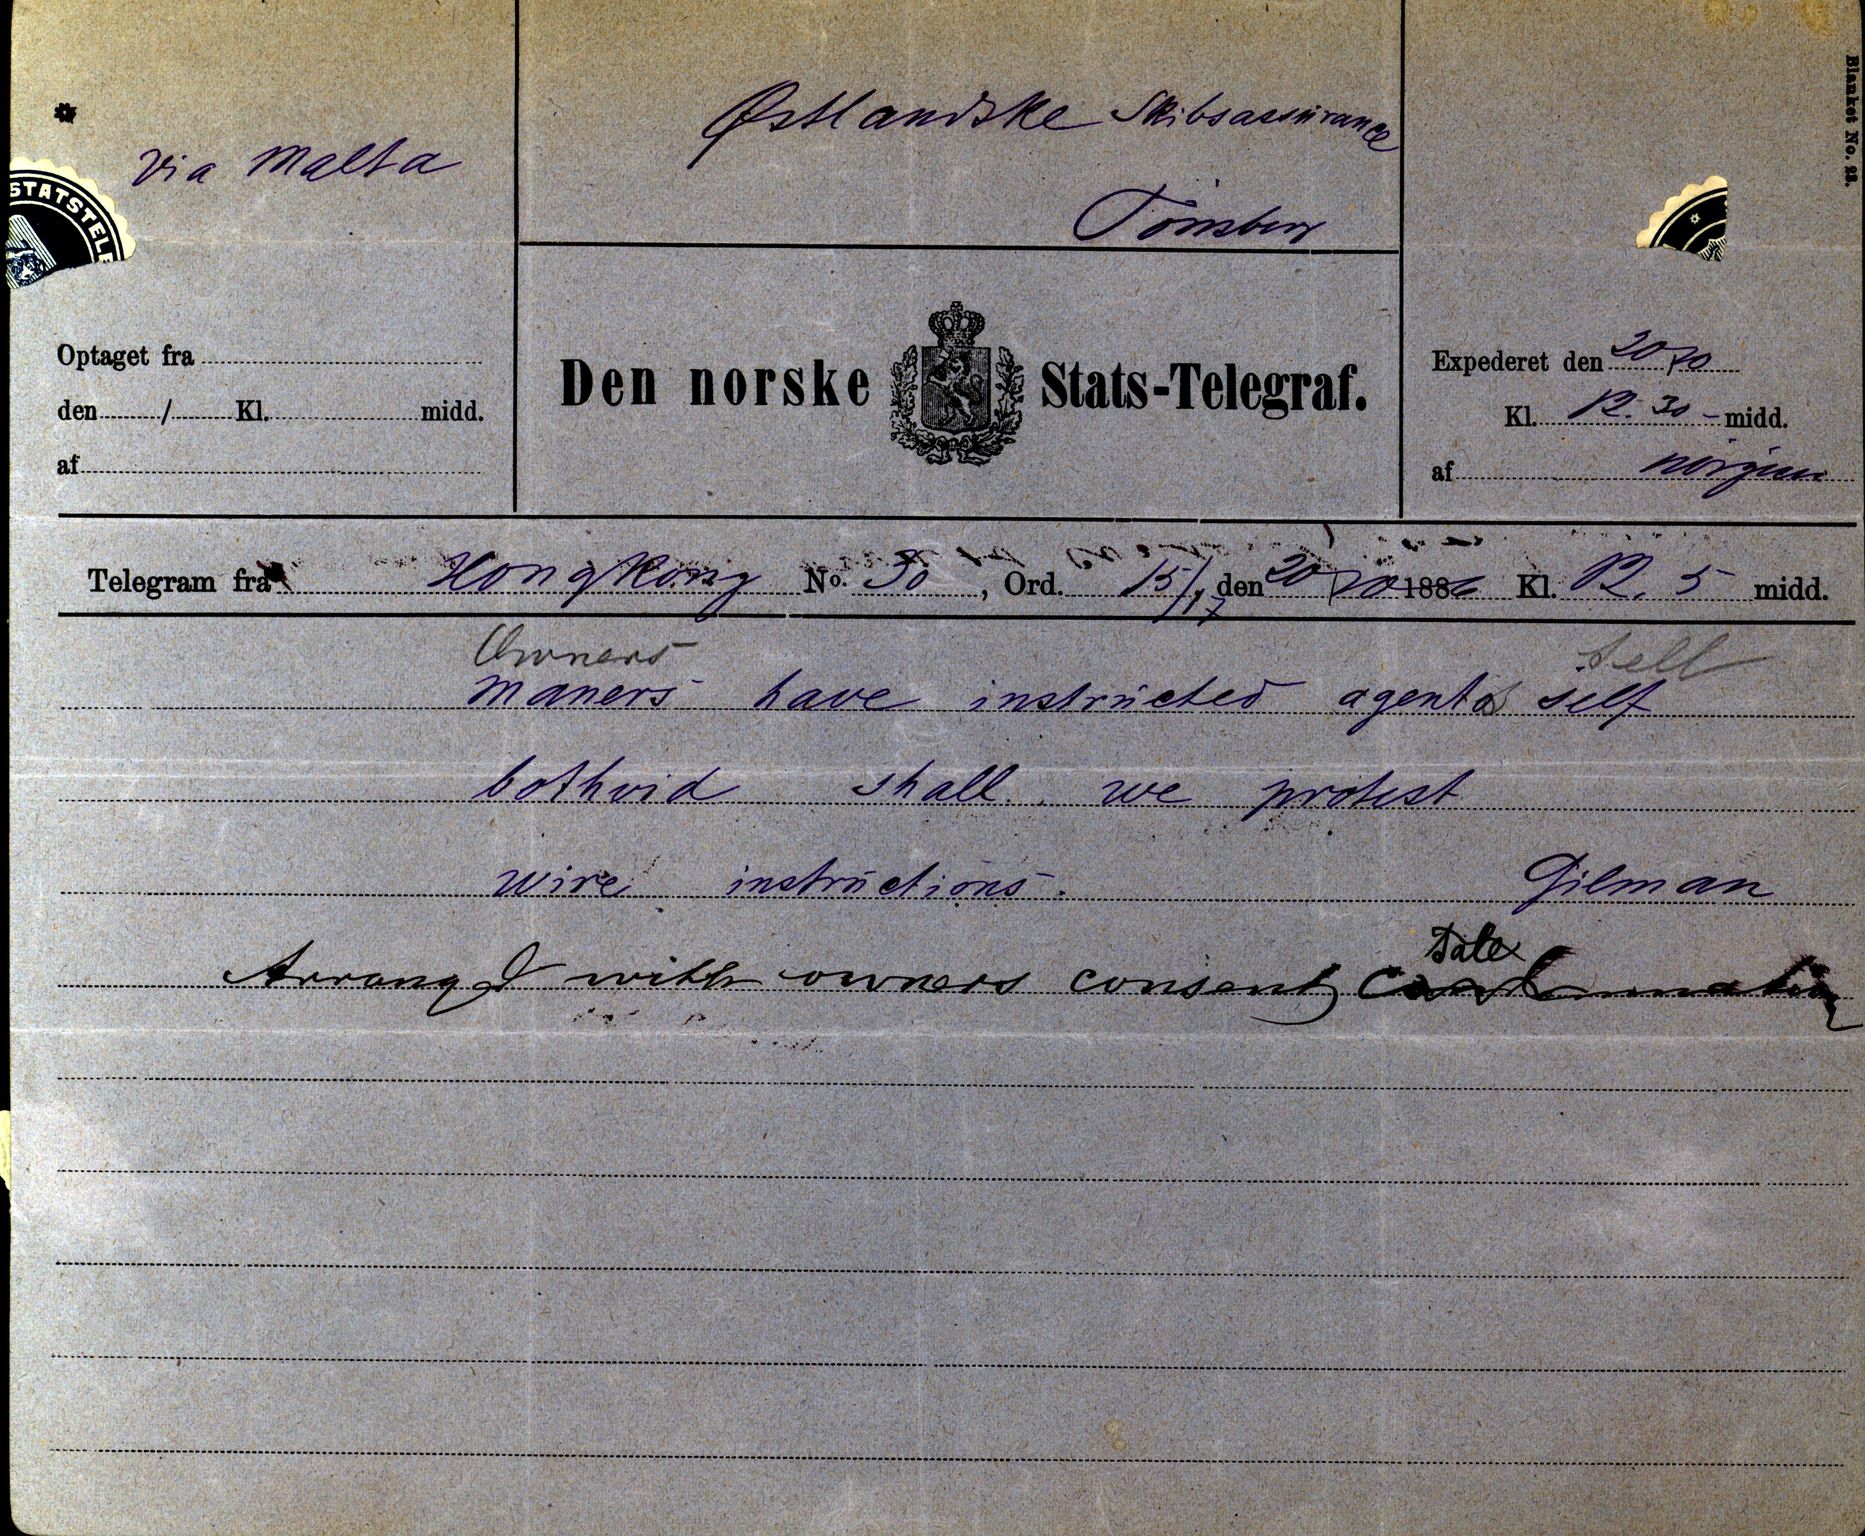 Blanket No. 23.
Via Malta
Østlandske Skibsassurance
Tønsberg
STATSTELE
Optaget fra
den / Kl. midd.
af
Den norske Stats-Telegraf.
Expederet den 20/10
Kl. 12.30 - midd.
af
Telegram fra Hongkong No. 30, Ord. 15/17, den 20/10 1886 Kl. 12.5 midd.
Owners sell
maners have instructed agents self
bothvid shall we protest
wire instructions. Gilman
Sale
Arranged with owners consent Condemnation